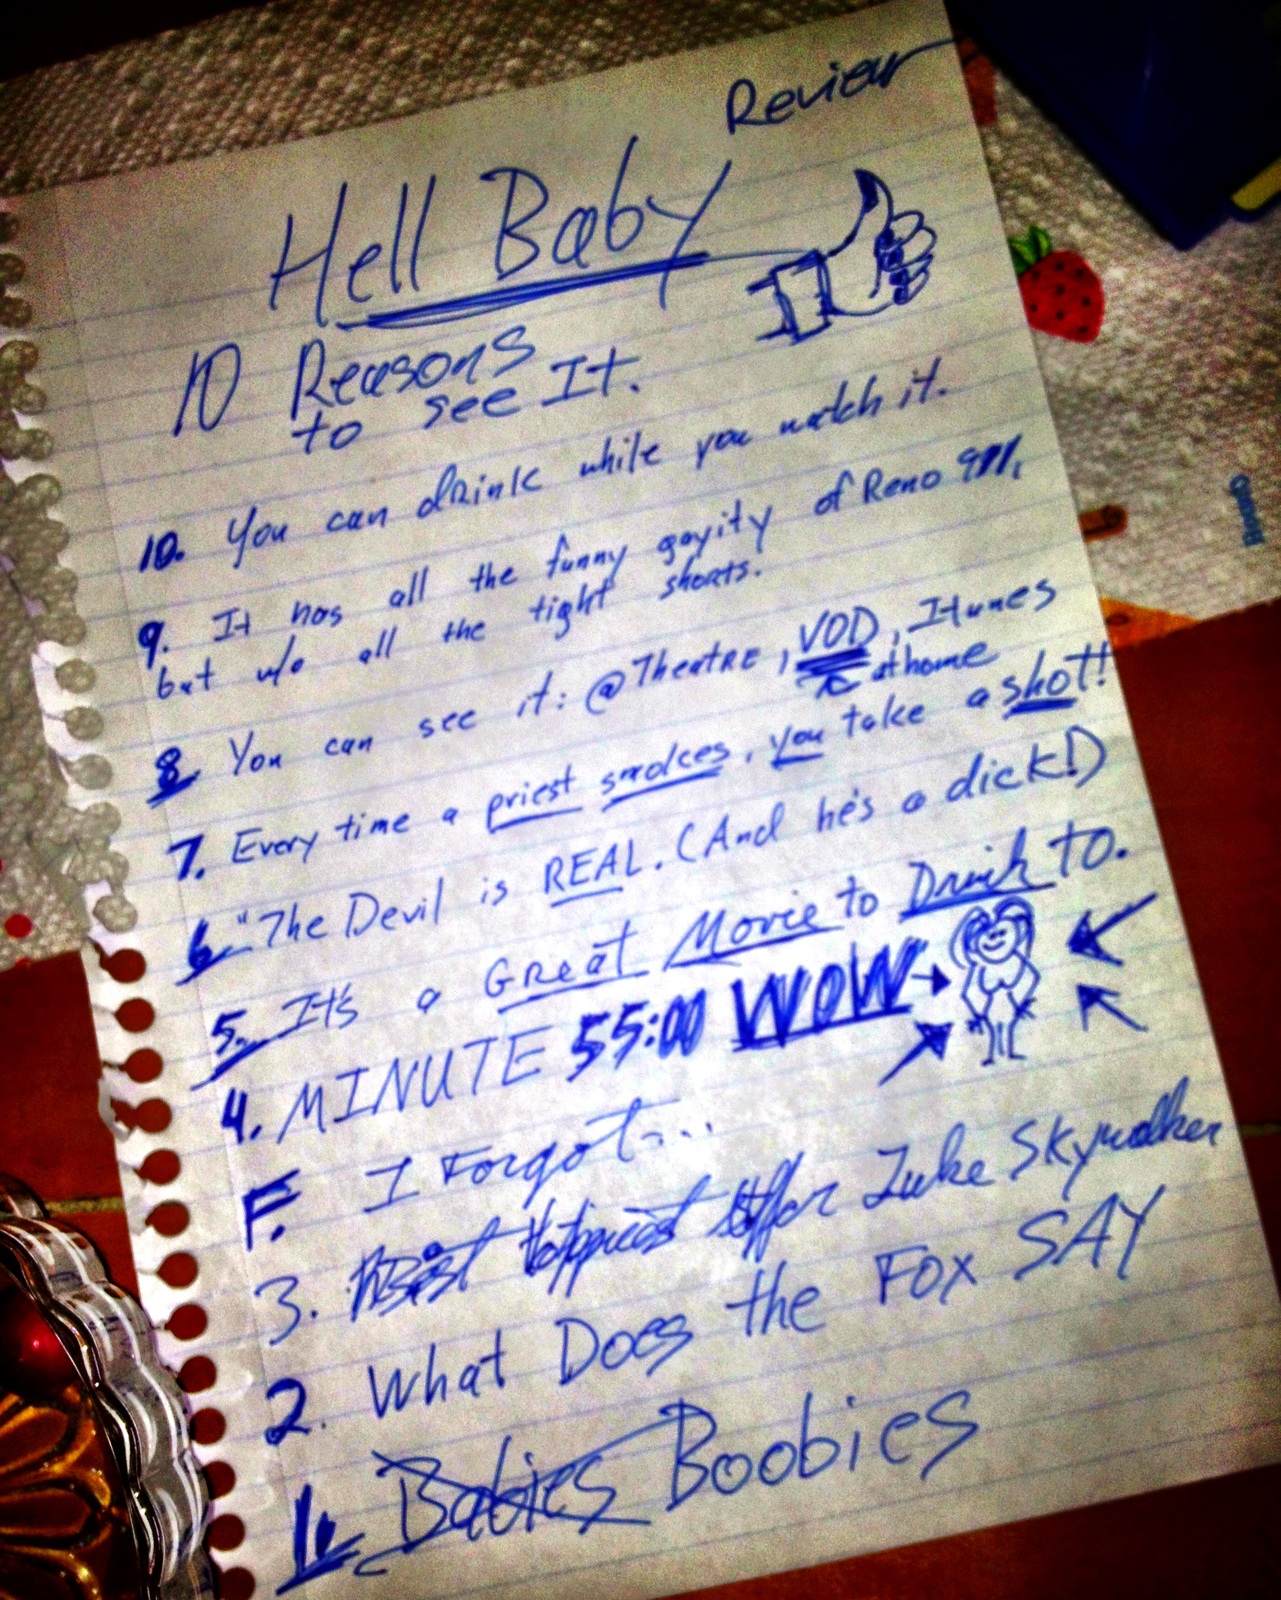 Review
Hell Baby
10 Reasons
to see It.
10. You can drink while you watch it.
9. It has all the funny gayity of Reno 911,
but w/o all the tight shorts.
8 You can see it: @ Theatre, VOD, Itunes
at home
7. Every time a priest smokes, you take a shot!
6. "The Devil is REAL. (And he's a dick!)
5. It's a Great Movie to Drink to.
4. MINUTE 55:00 WOW
F. I Forgot...
3. Luke Skywalker
2. What Does the Fox SAY
1. Babies Boobies